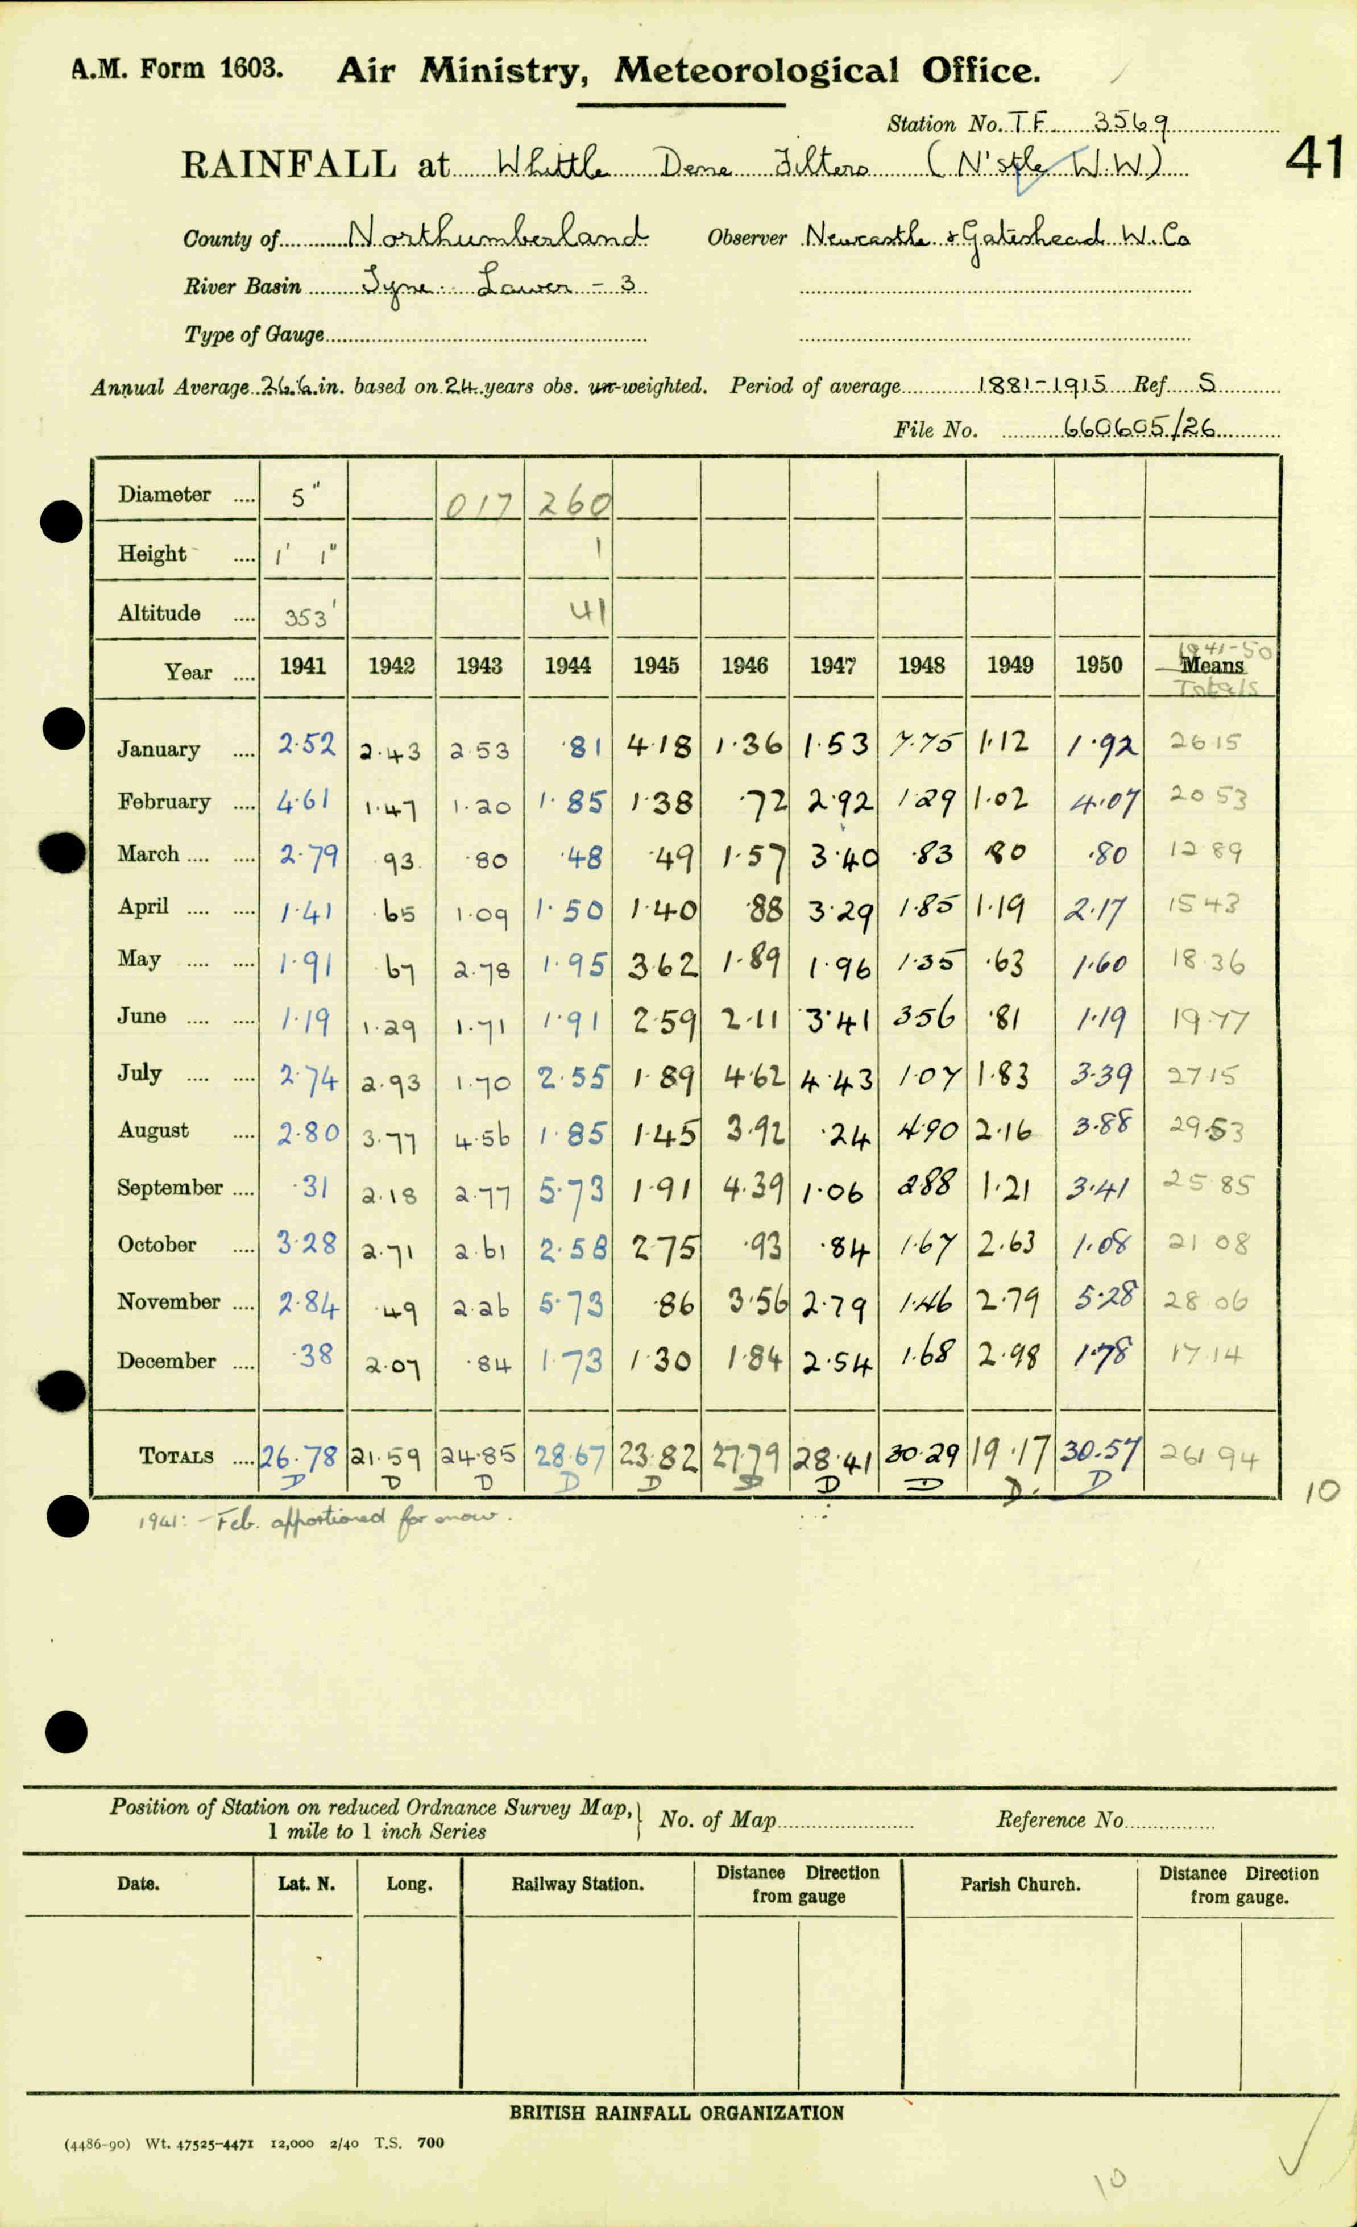 A.M. Form 1603. Air Ministry, Meteorological Office.
Station No. T.F. 3569
RAINFALL at Whittle Dene Filters (N'stle W.W) 41
County of Northumberland Observer Newcastle & Gateshead W. Co
River Basin Tyne. Lower - 3
Type of Gauge
Annual Average 26.6 in. based on 24 years obs. un-weighted. Period of average 1881-1915 Ref S
File No. 660605/26
Diameter .... 5" 017 260
Height .... 1' 1" 1
Altitude .... 353' 41
1941-50
Year .... 1941 1942 1943 1944 1945 1946 1947 1948 1949 1950 Means
Totals
January .... 2.52 2.43 2.53 .81 4.18 1.36 1.53 7.75 1.12 1.92 26.15
February .... 4.61 1.47 1.20 1.85 1.38 .72 2.92 1.29 1.02 4.07 20 53
March .... .... 2.79 .93 .80 .48 .49 1.57 3.40 .83 .80 .80 12 89
April .... .... 1.41 .65 1.09 1.50 1.40 .88 3.29 1.85 1.19 2.17 15 43
May .... .... 1.91 .67 2.78 1.95 3.62 1.89 1.96 1.35 .63 1.60 18.36
June .... .... 1.19 1.29 1.71 1.91 2.59 2.11 3.41 3.56 .81 1.19 19.77
July .... .... 2.74 2.93 1.70 2.55 1.89 4.62 4.43 1.07 1.83 3.39 27.15
August .... 2.80 3.77 4.56 1.85 1.45 3.92 .24 4.90 2.16 3.88 29.53
September .... .31 2.18 2.77 5.73 1.91 4.39 1.06 2.88 1.21 3.41 25.85
October .... 3.28 2.71 2.61 2.58 2.75 .93 .84 1.67 2.63 1.08 21 08
November .... 2.84 .49 2.26 5.73 .86 3.56 2.79 1.46 2.79 5.28 28 06
December .... .38 2.07 .84 1.73 1.30 1.84 2.54 1.68 2.98 1.78 17.14
TOTALS .... 26.78 21.59 24.85 28.67 23.82 27.79 28.41 30.29 19.17 30.57 261 94
D D D D D D D D D. D 10
1941: - Feb. apportioned for snow.
Position of Station on reduced Ordnance Survey Map,} No. of Map Reference No.
1 mile to 1 inch Series
Date. Lat. N. Long. Railway Station. Distance Direction from gauge Parish Church. Distance Direction from gauge.
BRITISH RAINFALL ORGANIZATION
(4486-90) Wt. 47525-4471 12,000 2/40 T.S. 700
10